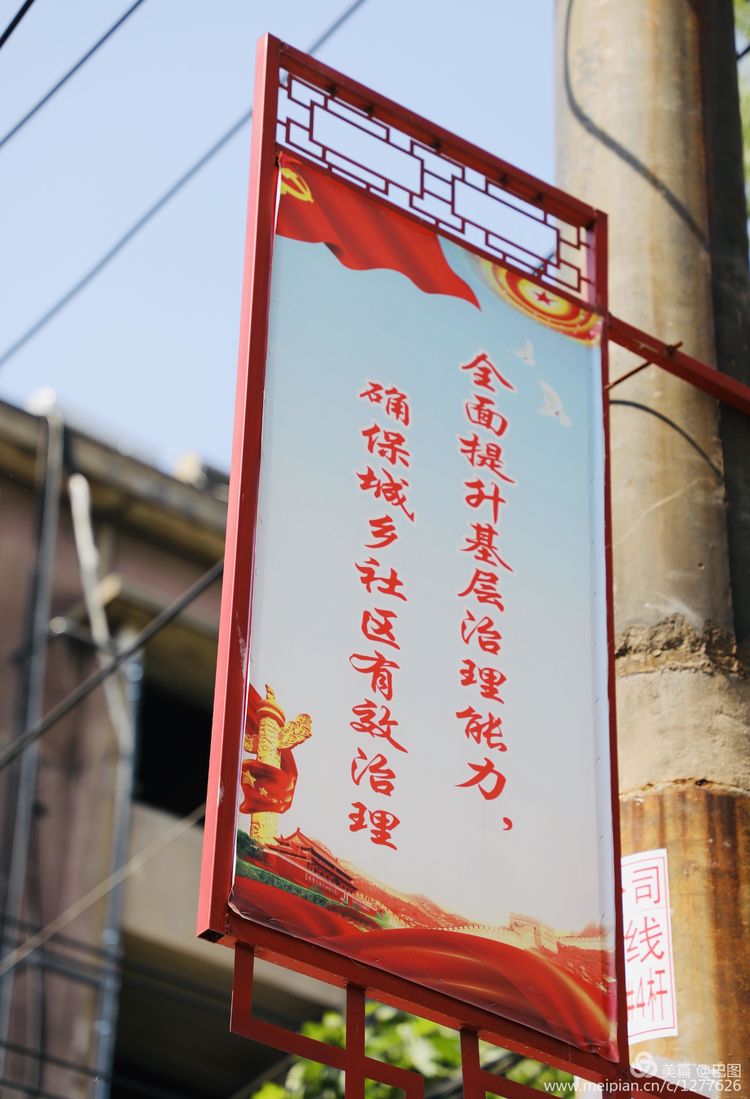 全面提升基层治理能力，
确保城乡社区有效治理
司
线
#4杆
美篇 @巴图
www.meipian.cn/c/1277626